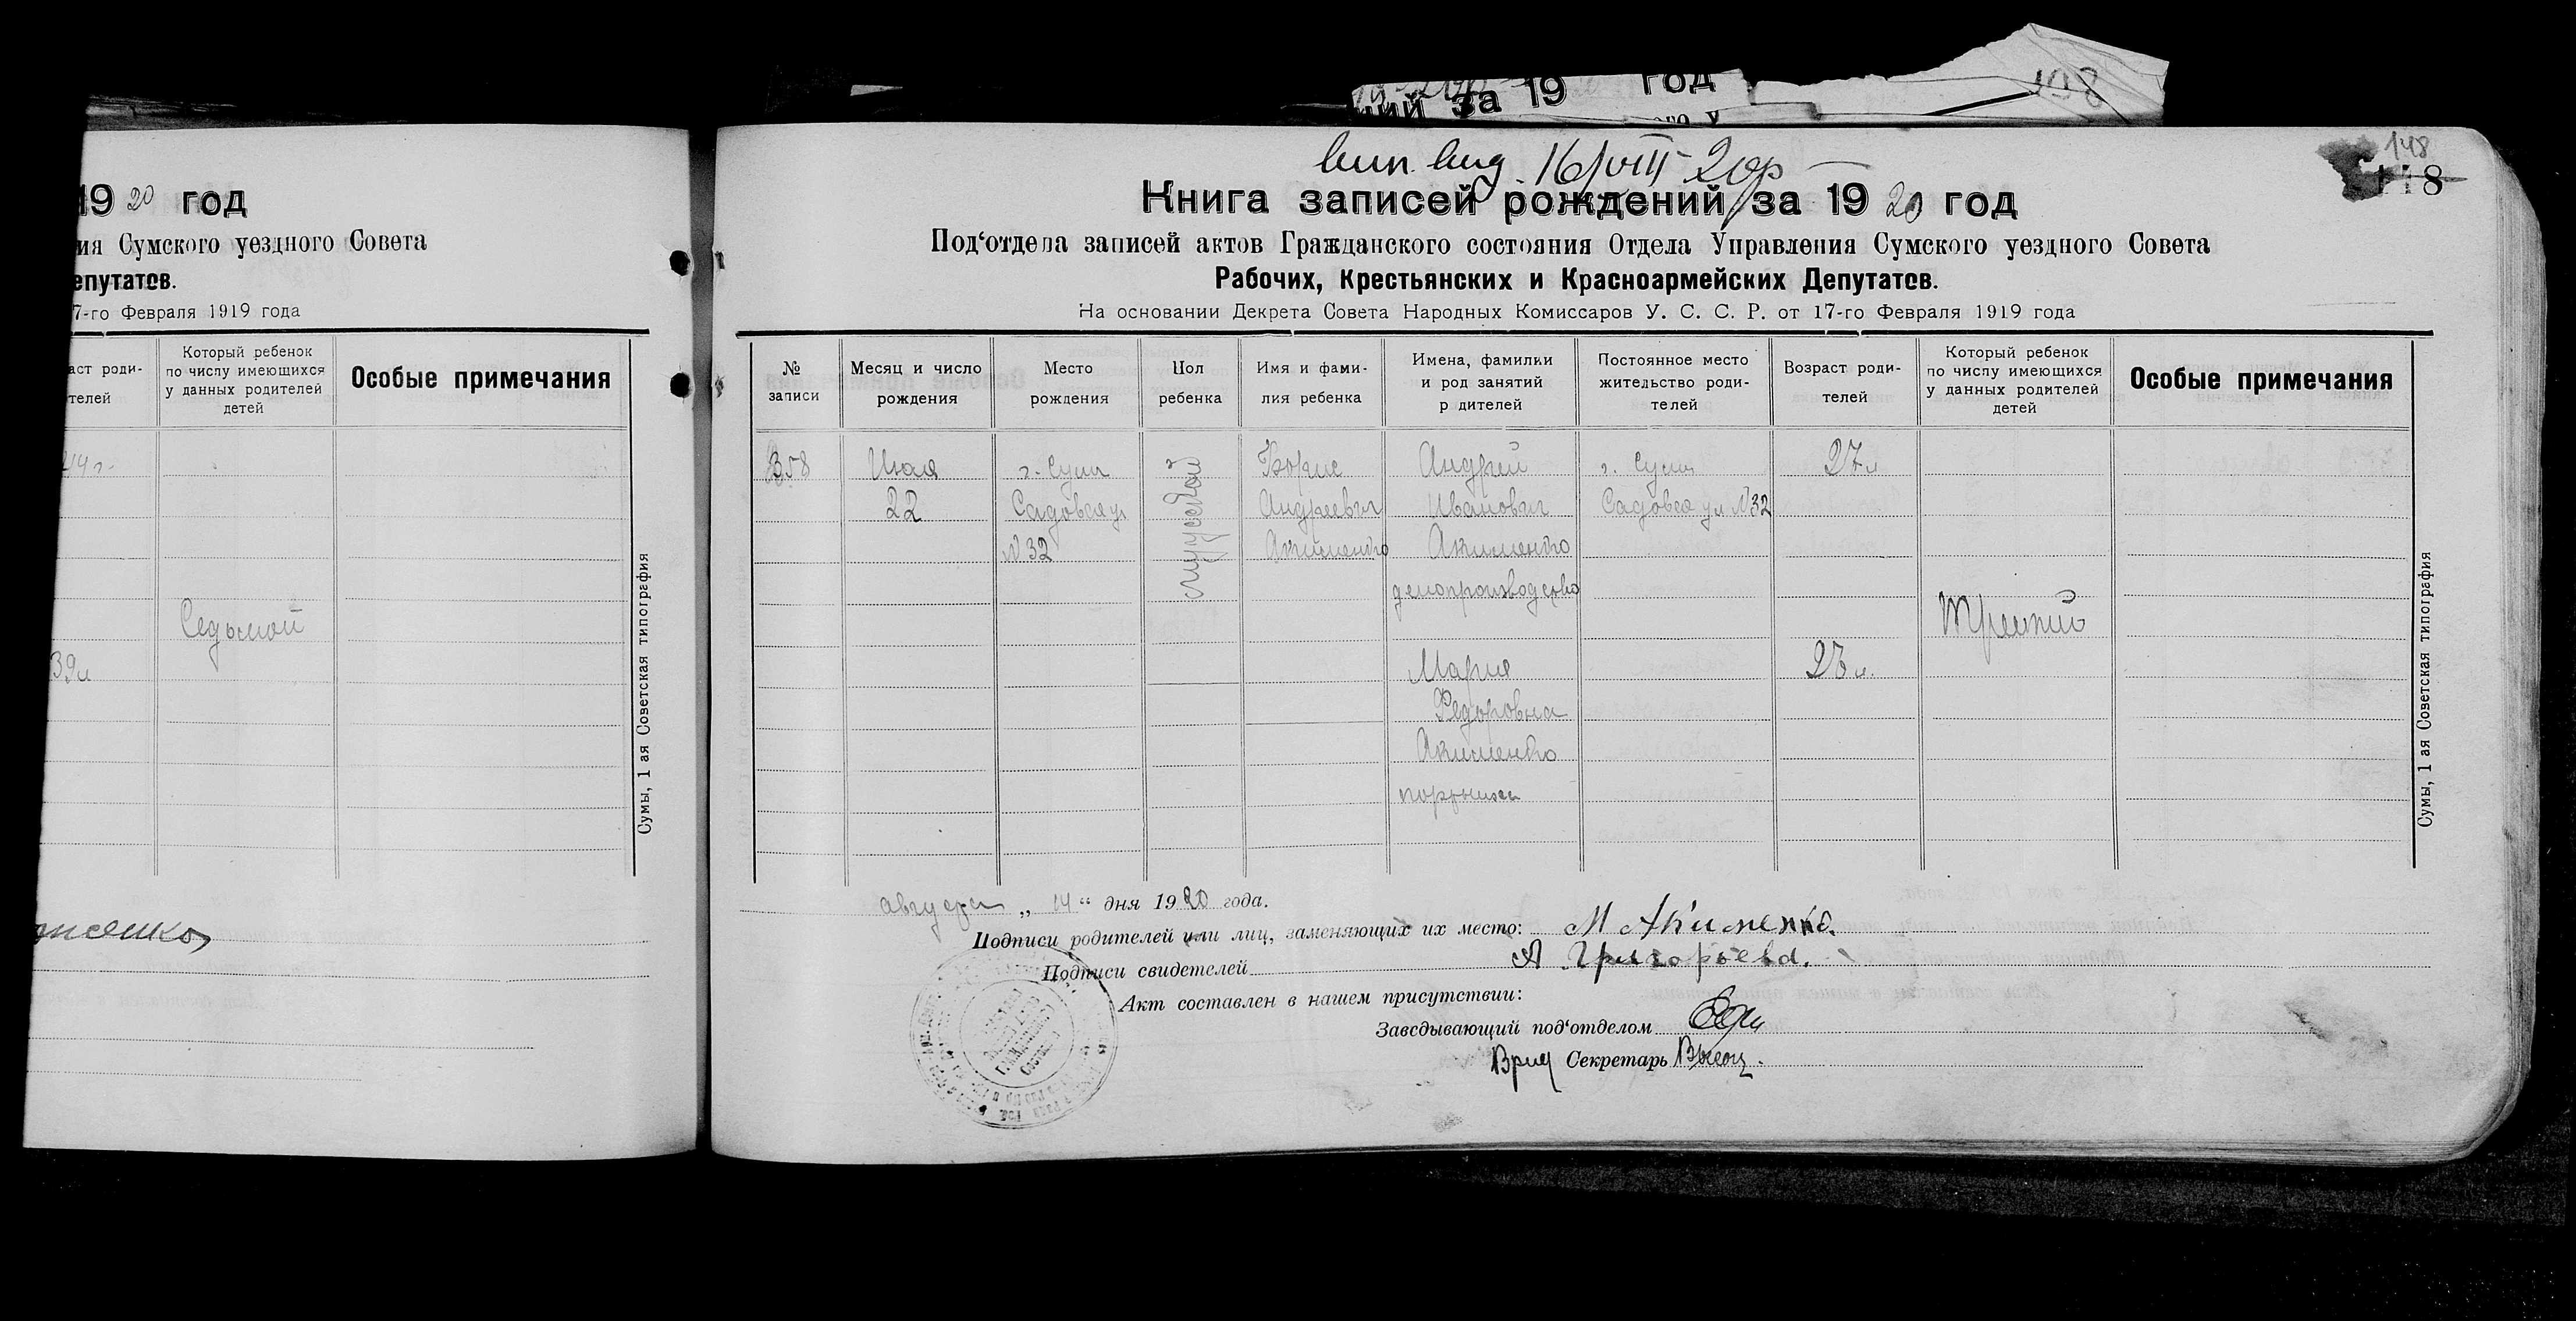 ий за 19 год
108
19 20 год
ия Сумского уездного Совета
епутатов.
7-го Февраля 1919 года
аст роди-
телей
Который ребенок
по числу имеющихся
у данных родителей
детей
Особые примечания
44 г.
Седьмой
39 л
Сумы, 1 ая Советская типография
16/VIII 20 р
148
118
Книга записей рождений за 19 20 год
Под'отдела записей актов Гражданского состояния Отдела Управления Сумского уездного Совета
Рабочих, Крестьянских и Красноармейских Депутатов.
На основании Декрета Совета Народных Комиссаров У. С. С. Р. от 17-го Февраля 1919 года
№
записи
Месяц и число
рождения
Место
рождения
Пол
ребенка
Имя и фами-
лия ребенка
Имена, фамилии
и род занятий
р дителей
Постоянное место
жительство роди-
телей
Возраст роди-
телей
Который ребенок
по числу имеющихся
у данных родителей
детей
Особые примечания
358
Июля
22
г. Сумы
Садовая ул
№ 32
мужской
Борис
Андреевич
Акименко
Андрей
Иванович
Акименко
делопроизводство
Мария
Федоровна
Акименко
г. Сумы
Садовая ул № 32
27 л
23 л.
Третий
Сумы, 1 ая Советская типография
августа „ 14 “ дня 19 20 года.
Подписи родителей или лиц, заменяющих их место: М Акименко.
Подписи свидетелей А Григорьева.
Акт составлен в нашем присутствии:
Заведывающий под'отделом
Врид Секретарь